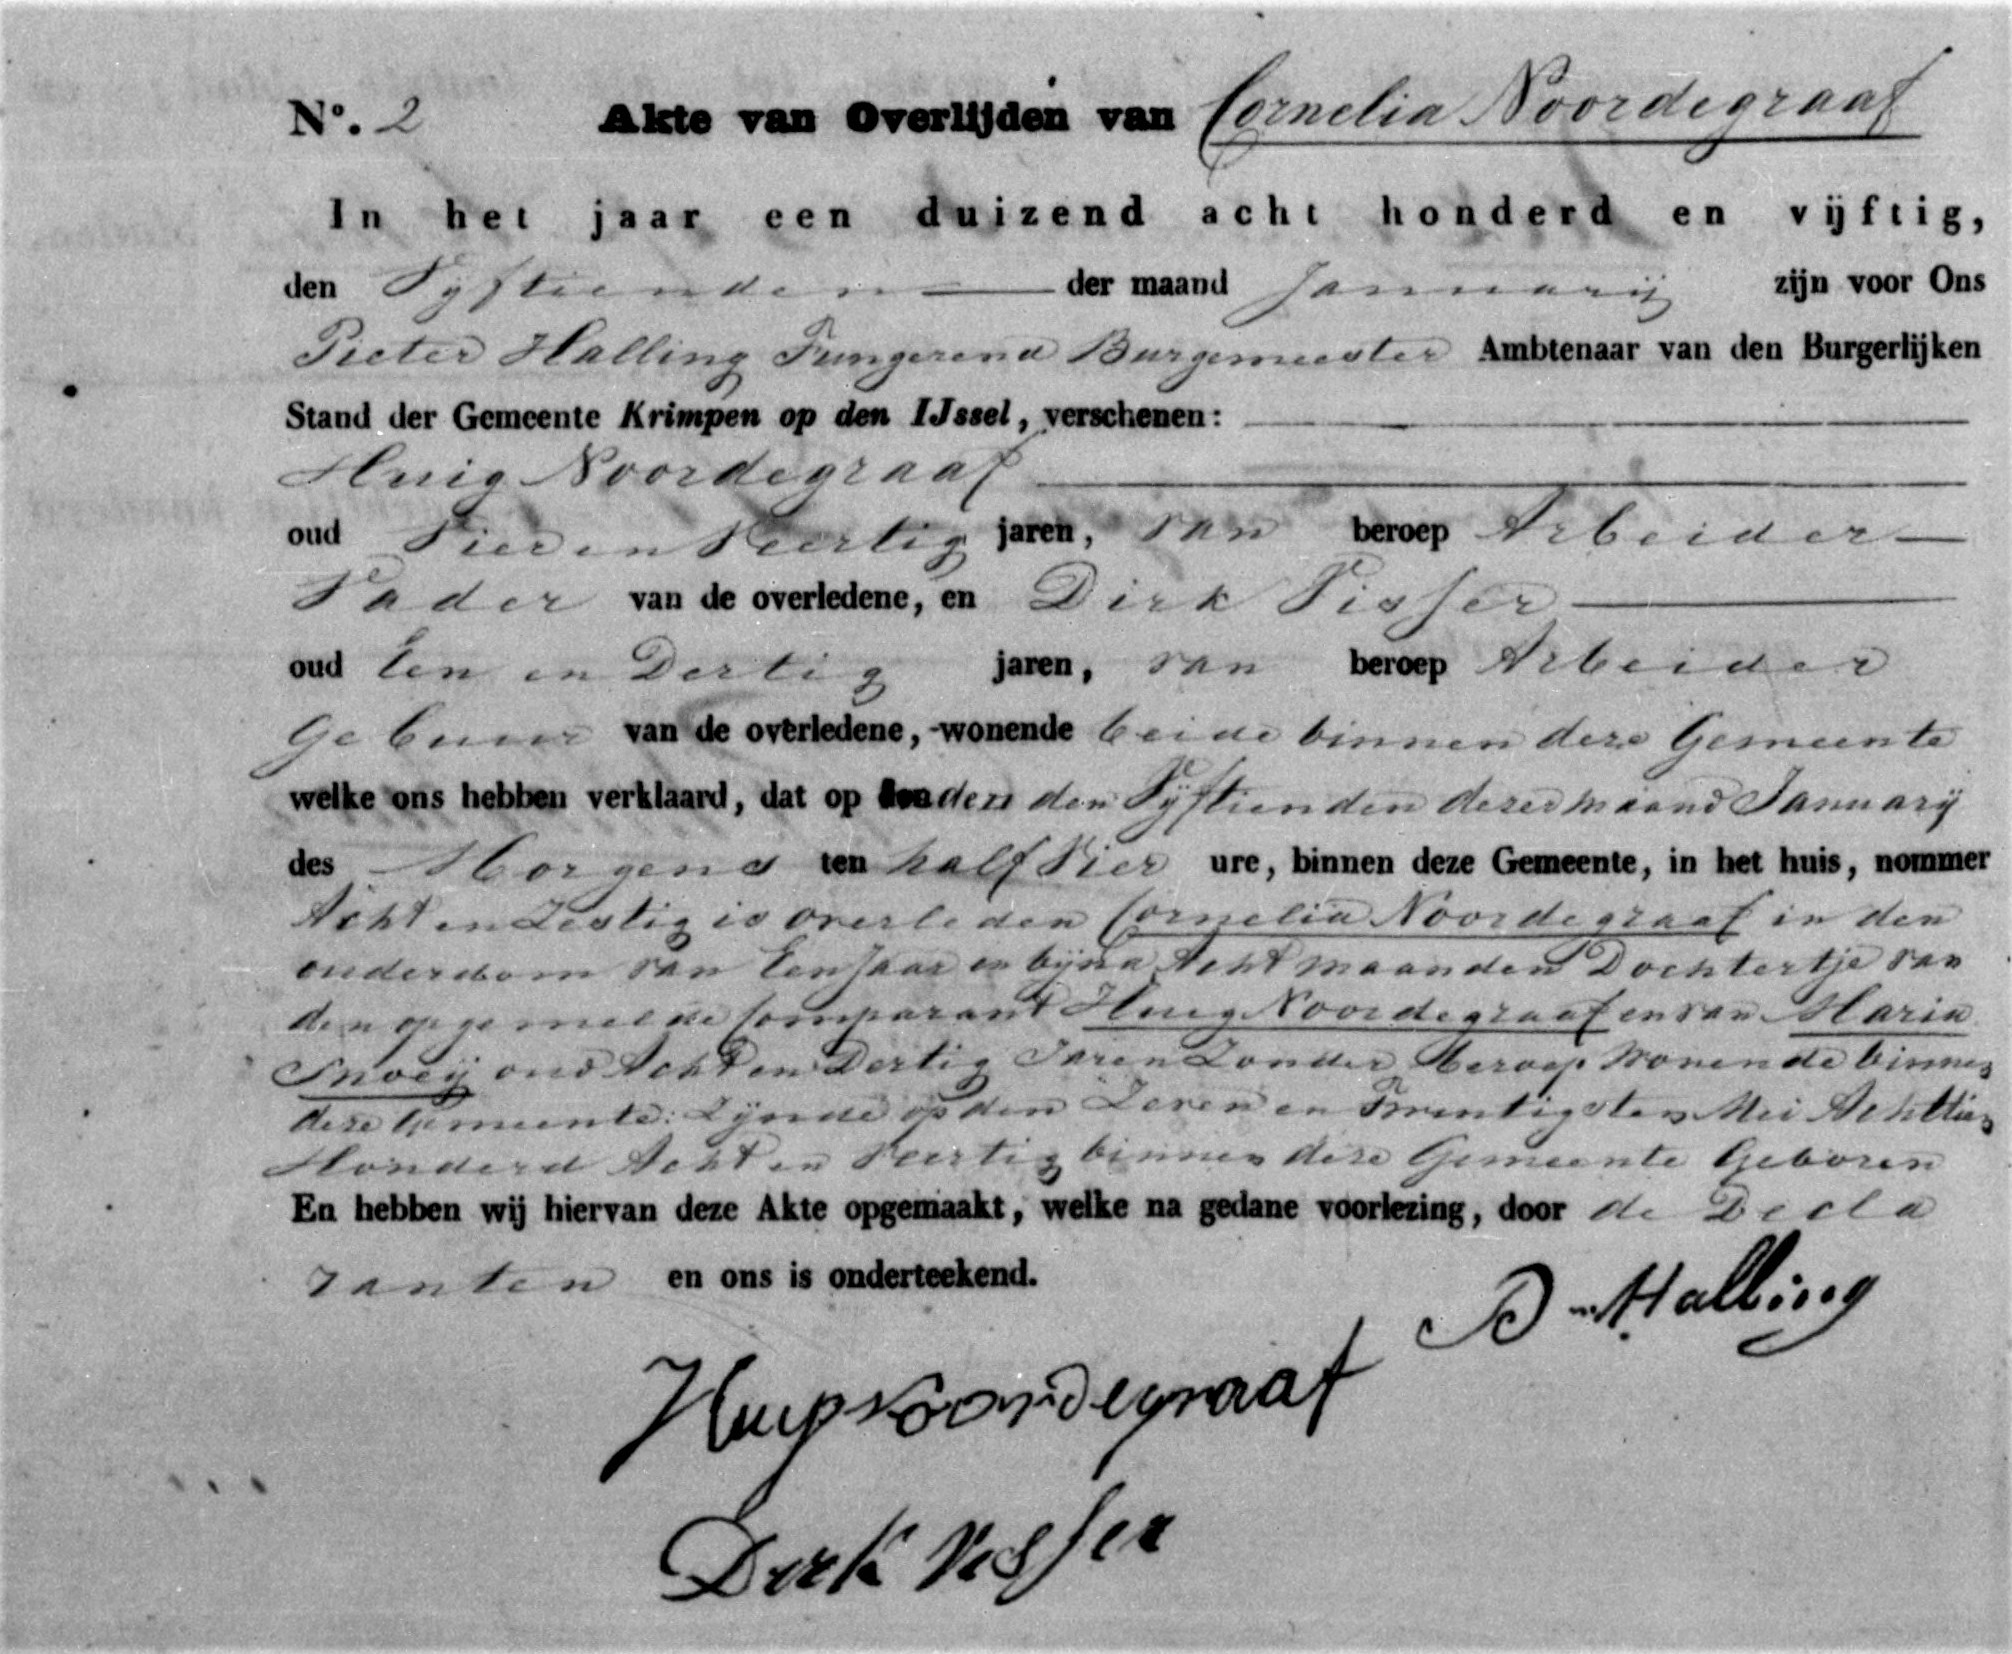 N°. 2 Akte van Overlijden van Cornelia Noordegraaf
In het jaar een duizend acht honderd en vijftig,
den Vyftienden der maand Januarij zijn voor Ons
Pieter Halling Fungerend Burgemeester Ambtenaar van den Burgerlijken
Stand der Gemeente Krimpen op den IJssel, verschenen:
Huig Noordegraaf
oud Vier en Veertig jaren, van beroep Arbeider
Vader van de overledene, en Dirk Visser
oud Een en Dertig jaren, van beroep Arbeider
Gebuur van de overledene, wonende beide binnen deze Gemeente
welke ons hebben verklaard, dat op den den Vyftienden dezer maand January
des Morgens ten half Vier ure, binnen deze Gemeente, in het huis, nommer
Acht en Zestig is overleden Cornelia Noordegraaf in den
ouderdom van Een Jaar en byna Acht maanden Dochtertje van
den opgemelde Comparant Huig Noordegraaf en van Maria
Snoey oud Acht en Dertig Jaren Zonder beroep Wonende binnen
deze Gemeente: Zynde op den Zeven en Twintigsten Mei Achttien
Honderd Acht en Veertig binnen deze Gemeente Geboren
En hebben wij hiervan deze Akte opgemaakt, welke na gedane voorlezing, door de Decla
ranten en ons is onderteekend.
P Halling
Huig Noordegraaf
Dirk Visser